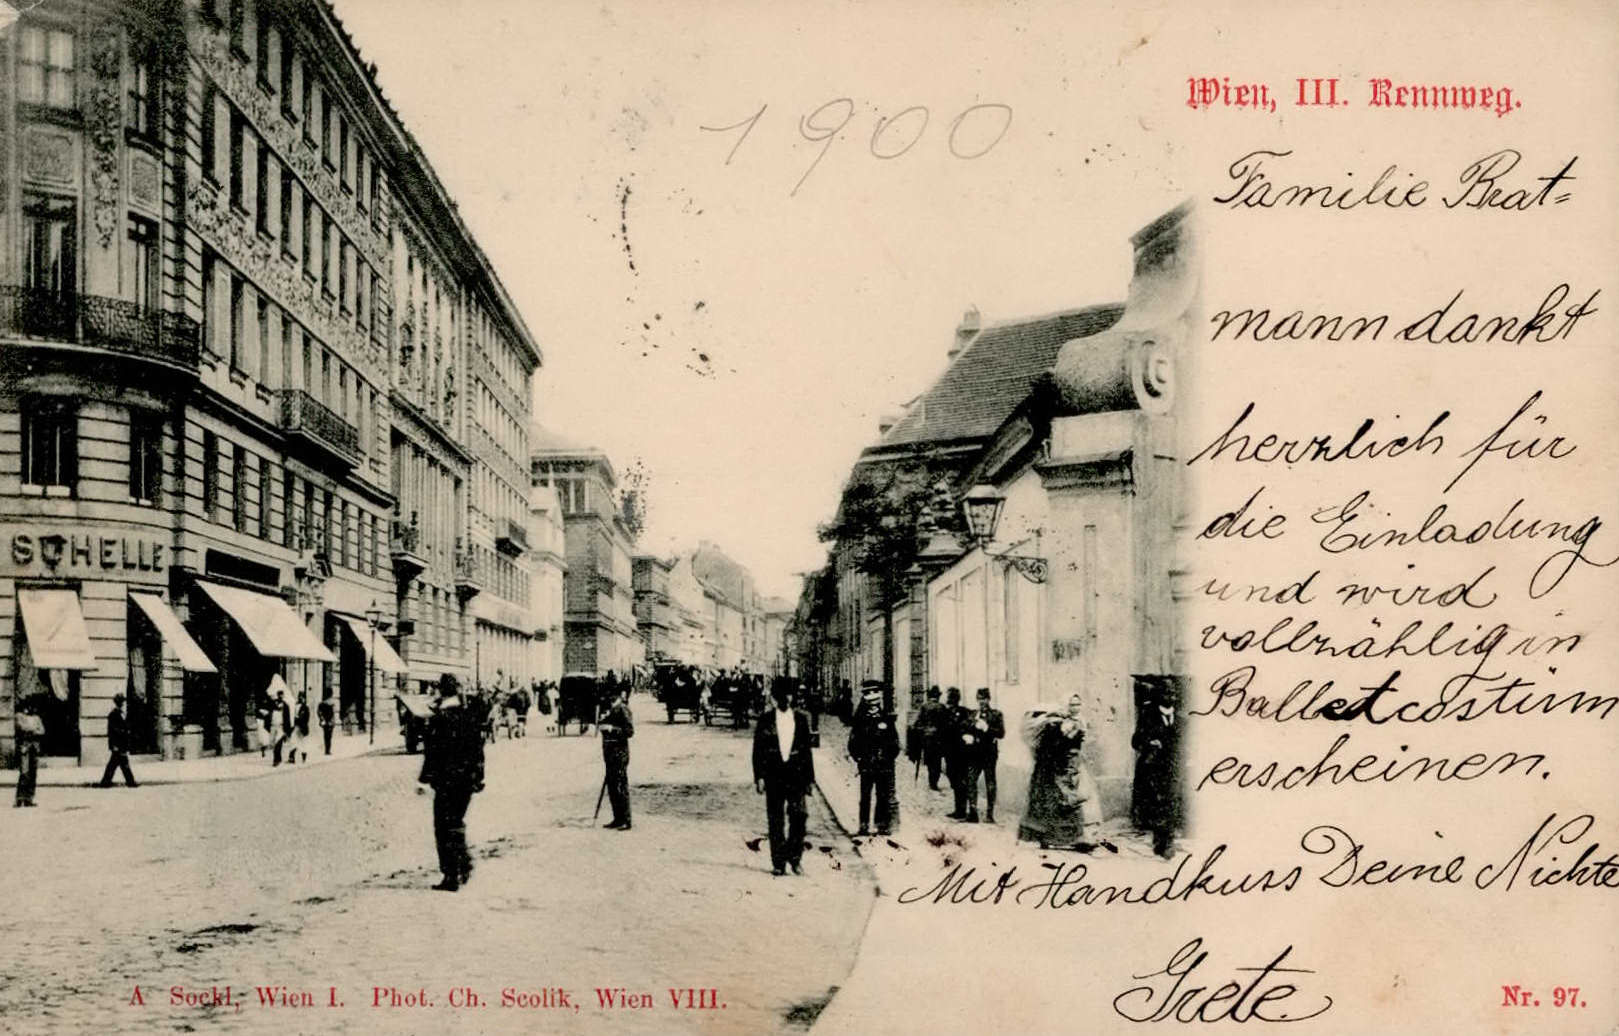 1900
Wien, III. Rennweg.
Familie Brat=
mann dankt
herzlich für
die Einladung
und wird
vollzählig in
Balletcostüm
erscheinen.
Mit Handkuss Deine Nichte
Grete
SCHELLE
A Sockl, Wien I. Phot. Ch. Scolik, Wien VIII.
Nr. 97.